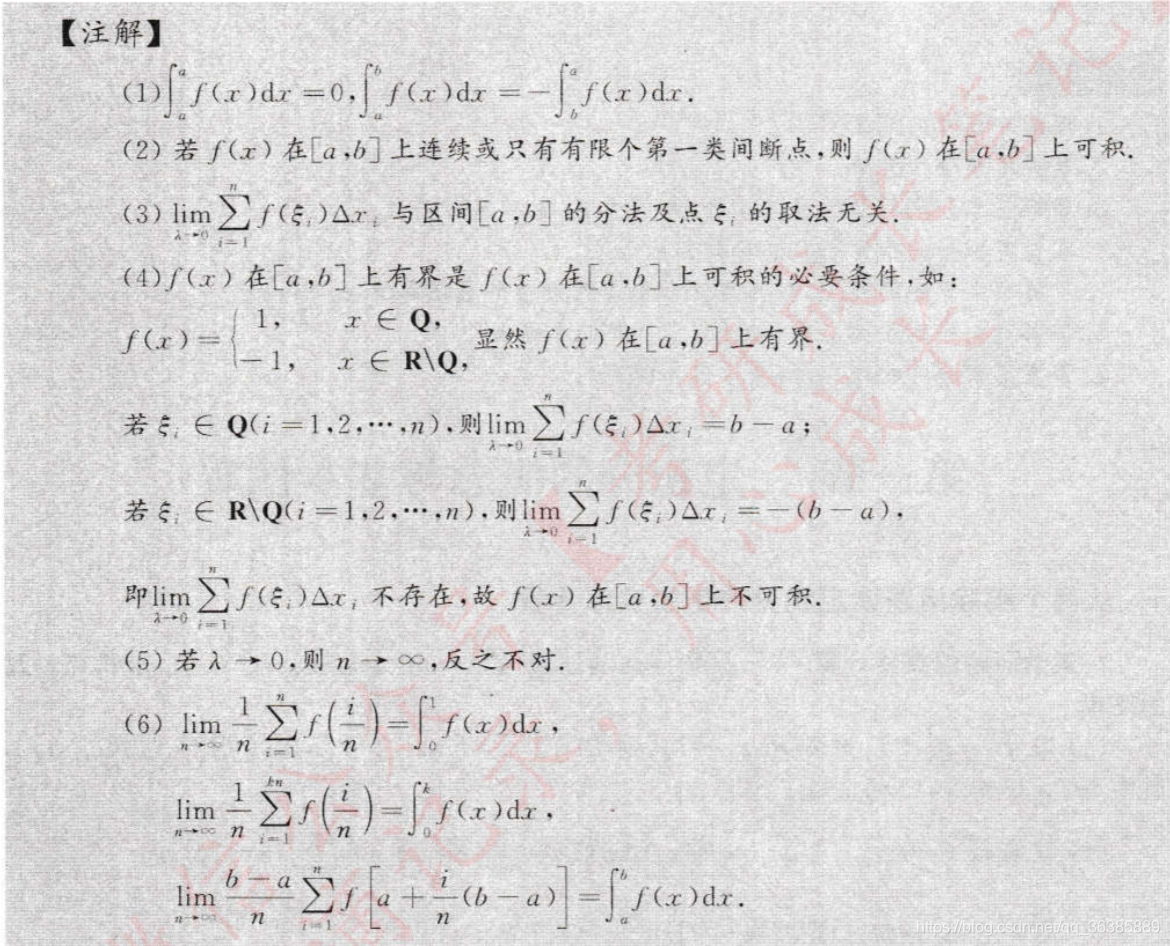 【注解】
(1)∫_a^a f(x)dx=0,∫_a^b f(x)dx=-∫_b^a f(x)dx.
(2) 若 f(x) 在[a,b]上连续或只有有限个第一类间断点,则 f(x) 在[a,b]上可积.
(3) lim_{λ→0} ∑_{i=1}^{n} f(ξ_i)Δx_i 与区间[a,b]的分法及点 ξ_i 的取法无关.
(4) f(x) 在[a,b]上有界是 f(x) 在[a,b]上可积的必要条件,如:
f(x)={1, x∈Q, -1, x∈R\Q, 显然 f(x) 在[a,b]上有界.
若 ξ_i∈Q(i=1,2,…,n),则 lim_{λ→0} ∑_{i=1}^{n} f(ξ_i)Δx_i=b-a;
若 ξ_i∈R\Q(i=1,2,…,n),则 lim_{λ→0} ∑_{i=1}^{n} f(ξ_i)Δx_i=-(b-a),
即 lim_{λ→0} ∑_{i=1}^{n} f(ξ_i)Δx_i 不存在,故 f(x) 在[a,b]上不可积.
(5) 若 λ→0,则 n→∞,反之不对.
(6) lim_{n→∞} 1/n ∑_{i=1}^{n} f(i/n)=∫_0^1 f(x)dx,
lim_{n→∞} 1/n ∑_{i=1}^{kn} f(i/n)=∫_0^k f(x)dx,
lim_{n→∞} (b-a)/n ∑_{i=1}^{n} f[a+i/n(b-a)]=∫_a^b f(x)dx.
https://blog.csdn.net/qq_36385889